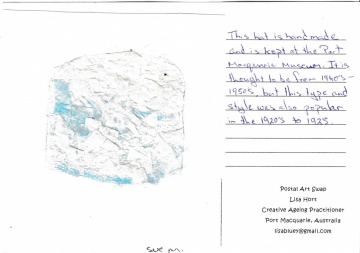 This hat is handmade
and is kept at the Port
Macquarie Museum. It is
thought to be from 1940's-
1950s, but this type and
style was also popular
in the 1920's to 1925.
Postal Art Swap
Lisa Hort
Creative Ageing Practitioner
Port Macquarie, Australia
lisabluey@gmail.com
Sue M.